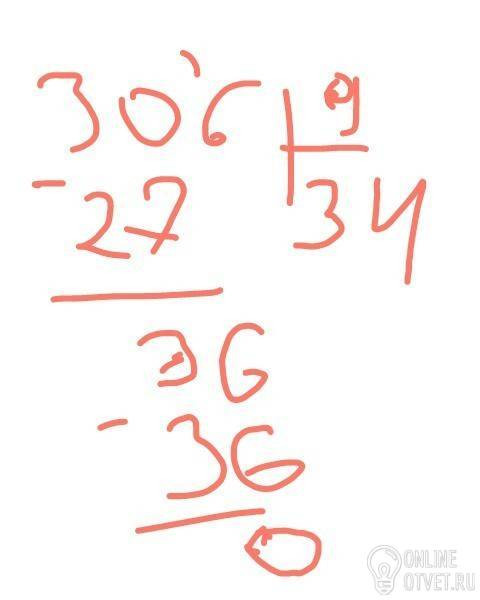 306 9
- 27 34
36
- 36
0
ONLINE
OTVET.RU